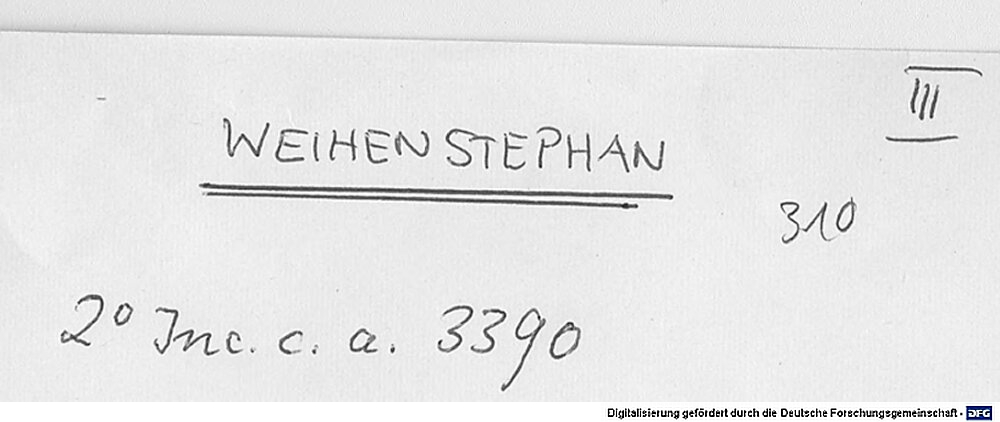 III
WEIHENSTEPHAN
310
2° Inc. c. a. 3390
Digitalisierung gefördert durch die Deutsche Forschungsgemeinschaft - DFG